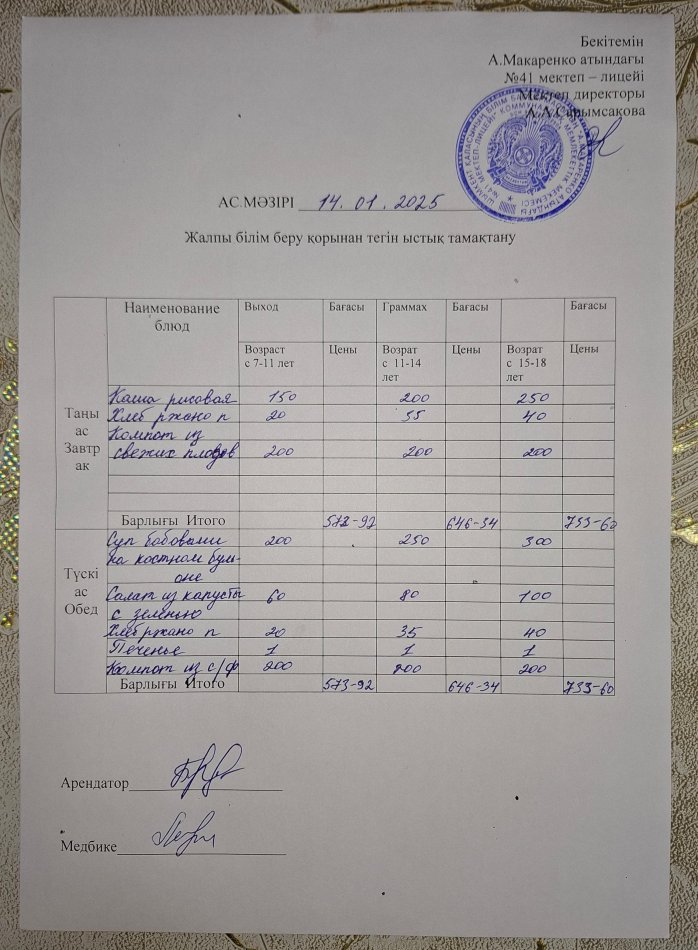 Бекітемін
А.Макаренко атындағы
№41 мектеп – лицейі
Мектеп директоры
А.А.Сарымсакова
АС.МӘЗІРІ 14.01.2025
Жалпы білім беру қорынан тегін ыстық тамақтану
Наименование блюд Выход Бағасы Граммах Бағасы Бағасы
Возраст с 7-11 лет Цены Возрат с 11-14 лет Цены Возрат с 15-18 лет Цены
Таңы ас Завтр ак
Каша рисовая 150 200 250
Хлеб ржано п 20 35 40
Компот из
свежих плодов 200 200 200
Барлығы Итого 573-92 646-34 733-60
Түскі ас Обед
Суп бобовыми 200 250 300
на костном буль-
оне
Салат из капусты 60 80 100
с зеленью
Хлеб ржано п 20 35 40
Печенье 1 1 1
Компот из с/ф 200 200 200
Барлығы Итого 573-92 646-34 733-60
Арендатор
Медбике